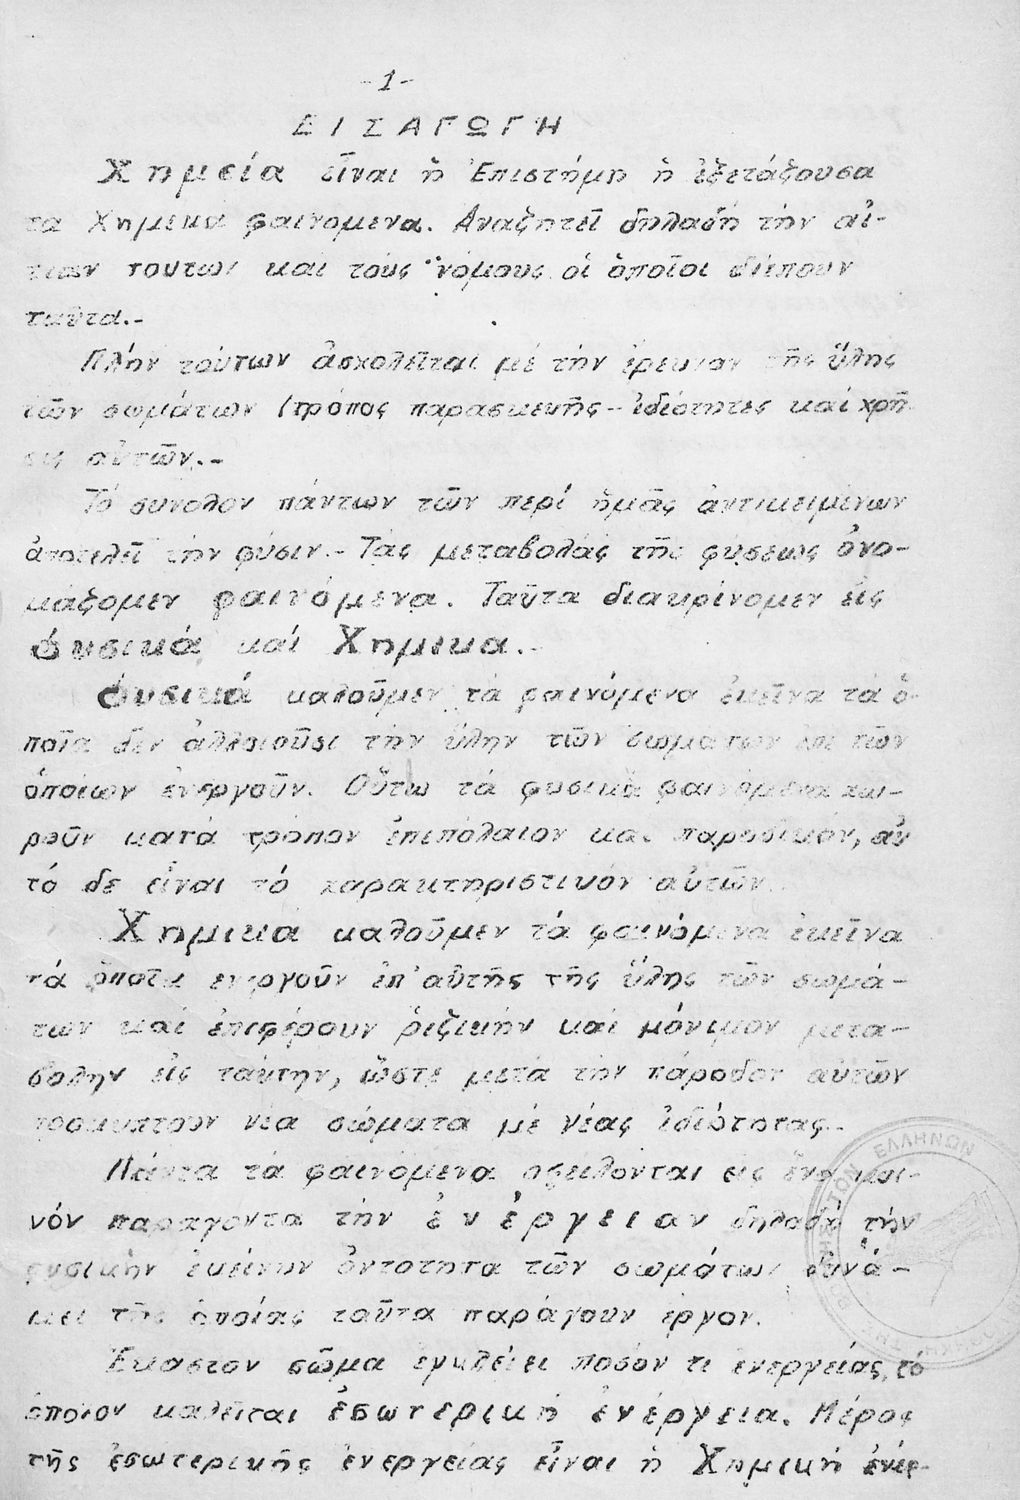 -1-
ΕΙΣΑΓΩΓΗ
Χημεία εἶναι ἡ Ἐπιστήμη ἡ ἐξετάζουσα
τα Χημικά φαινομενα. Αναζητεῖ δηλαδή τήν αἰ-
τιαν τουτων καί τούς νόμους οἱ ὁποῖοι διέπουν
ταῦτα.-
Πλήν τούτων ἀσχολεῖται μέ τήν ἐρευναν τῆς ὕλης
τῶν σωμάτων (τρόπος παρασκευῆς - ἰδιότητες καί χρῆ-
σις αὐτῶν.-
Τό συνολον πάντων τῶν περί ἡμᾶς ἀντικειμένων
ἀποτελεῖ τήν φύσιν.- Τάς μεταβολάς τῆς φύσεως ὀνο-
μάζομεν φαινόμενα. Ταῦτα διακρίνομεν εἰς
Φυσικά καί Χημικα.-
Φυσικά καλοῦμεν τά φαινόμενα ἐκεῖνα τά ὁ-
ποῖα δέν ἀλλοιοῦσι τήν ὕλην τῶν σωματων ἐπι τῶν
ὁποίων ἐνεργοῦν. Οὕτω τά φυσικά φαινόμενα χω-
ροῦν κατά τρόπον ἐπιπόλαιον και παροδικόν, αὐ
τό δε εἶναι τό χαρακτηριστικόν αὐτῶν.
Χημικα καλοῦμεν τά φαινόμενα ἐκεῖνα
τά ὁποῖα ενεργοῦν ἐπ' αὐτῆς τῆς ὕλης τῶν σωμά-
των καί ἐπιφέρουν ριζικήν καί μόνιμον μετα-
βολην εἰς ταύτην, ὥστε μετά τήν πάροδον αὐτῶν
προκυπτουν νέα σώματα μέ νέας ἰδιότητας.-
Πάντα τά φαινόμενα οφείλονται εἰς ἕνα κοι-
νόν παραγοντα τήν ἐνέργειαν δηλαδή τήν
φυσικήν ἐκείνην ὀντότητα τῶν σωμάτων δυνά-
μει τῆς ὁποίας ταῦτα παράγουν ἐργον.
Ἕκαστον σῶμα ἐγκλείει ποσόν τι ἐνεργείας, τό
ὁποίον καλεῖται ἐσωτερική ἐνέργεια. Μέρος
τῆς ἐσωτερικῆς ἐνεργείας εἶναι ἡ Χημική ἐνέρ-
ΕΛΛΗΝΩΝ